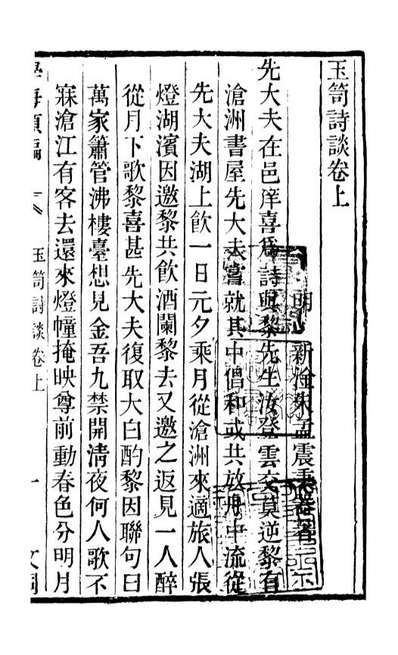 玉笥詩談卷上
明 新淦朱孟震秉器著
先大夫在邑庠喜爲詩與黎先生汝登雲交莫逆黎有
滄洲書屋先大夫嘗就其中倡和或共放舟中流從
先大夫湖上飲一日元夕乘月從滄洲來適旅人張
燈湖濱因邀黎共飲酒闌黎去又邀之返見一人醉
從月下歌黎喜甚先大夫復取大白酌黎因聯句曰
萬家簫管沸樓臺想見金吾九禁開清夜何人歌不
寐滄江有客去還來燈幢掩映尊前動春色分明月
學海類編 玉笥詩談卷上 一